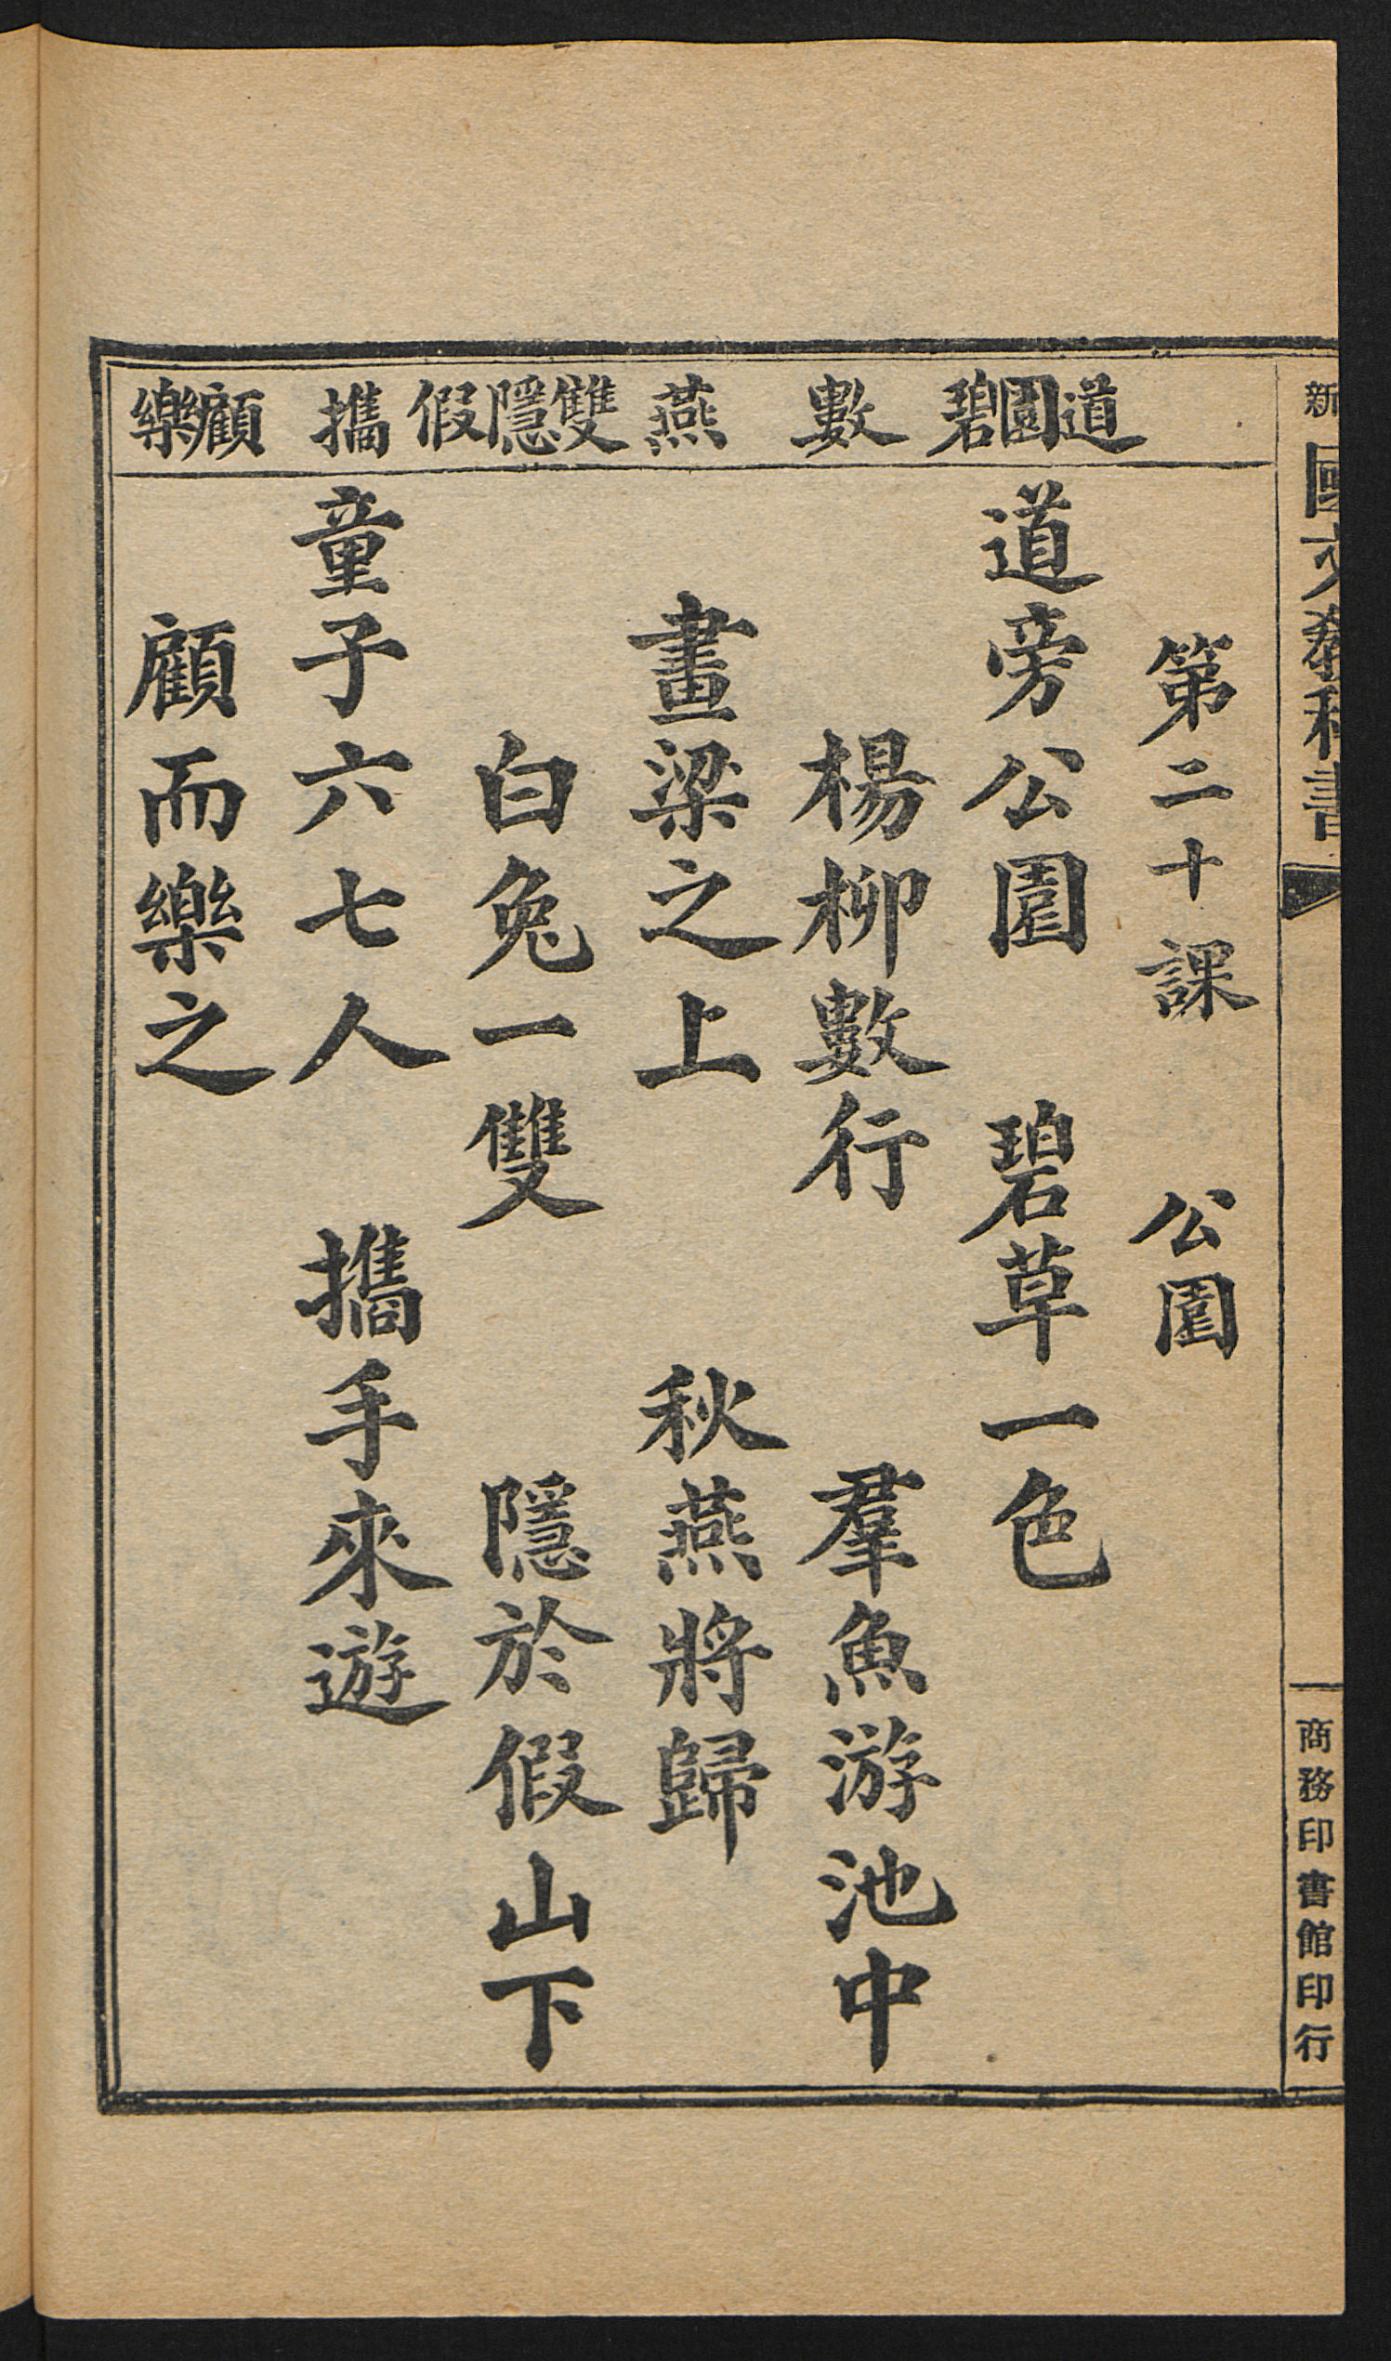 新國文教科書
商務印書館印行
道園碧 數 燕 雙隱假 攜 顧樂
第二十課 公園
道旁公園 碧草一色
楊柳數行 羣魚游池中
畫梁之上 秋燕將歸
白兔一雙 隱於假山下
童子六七人 攜手來遊
顧而樂之